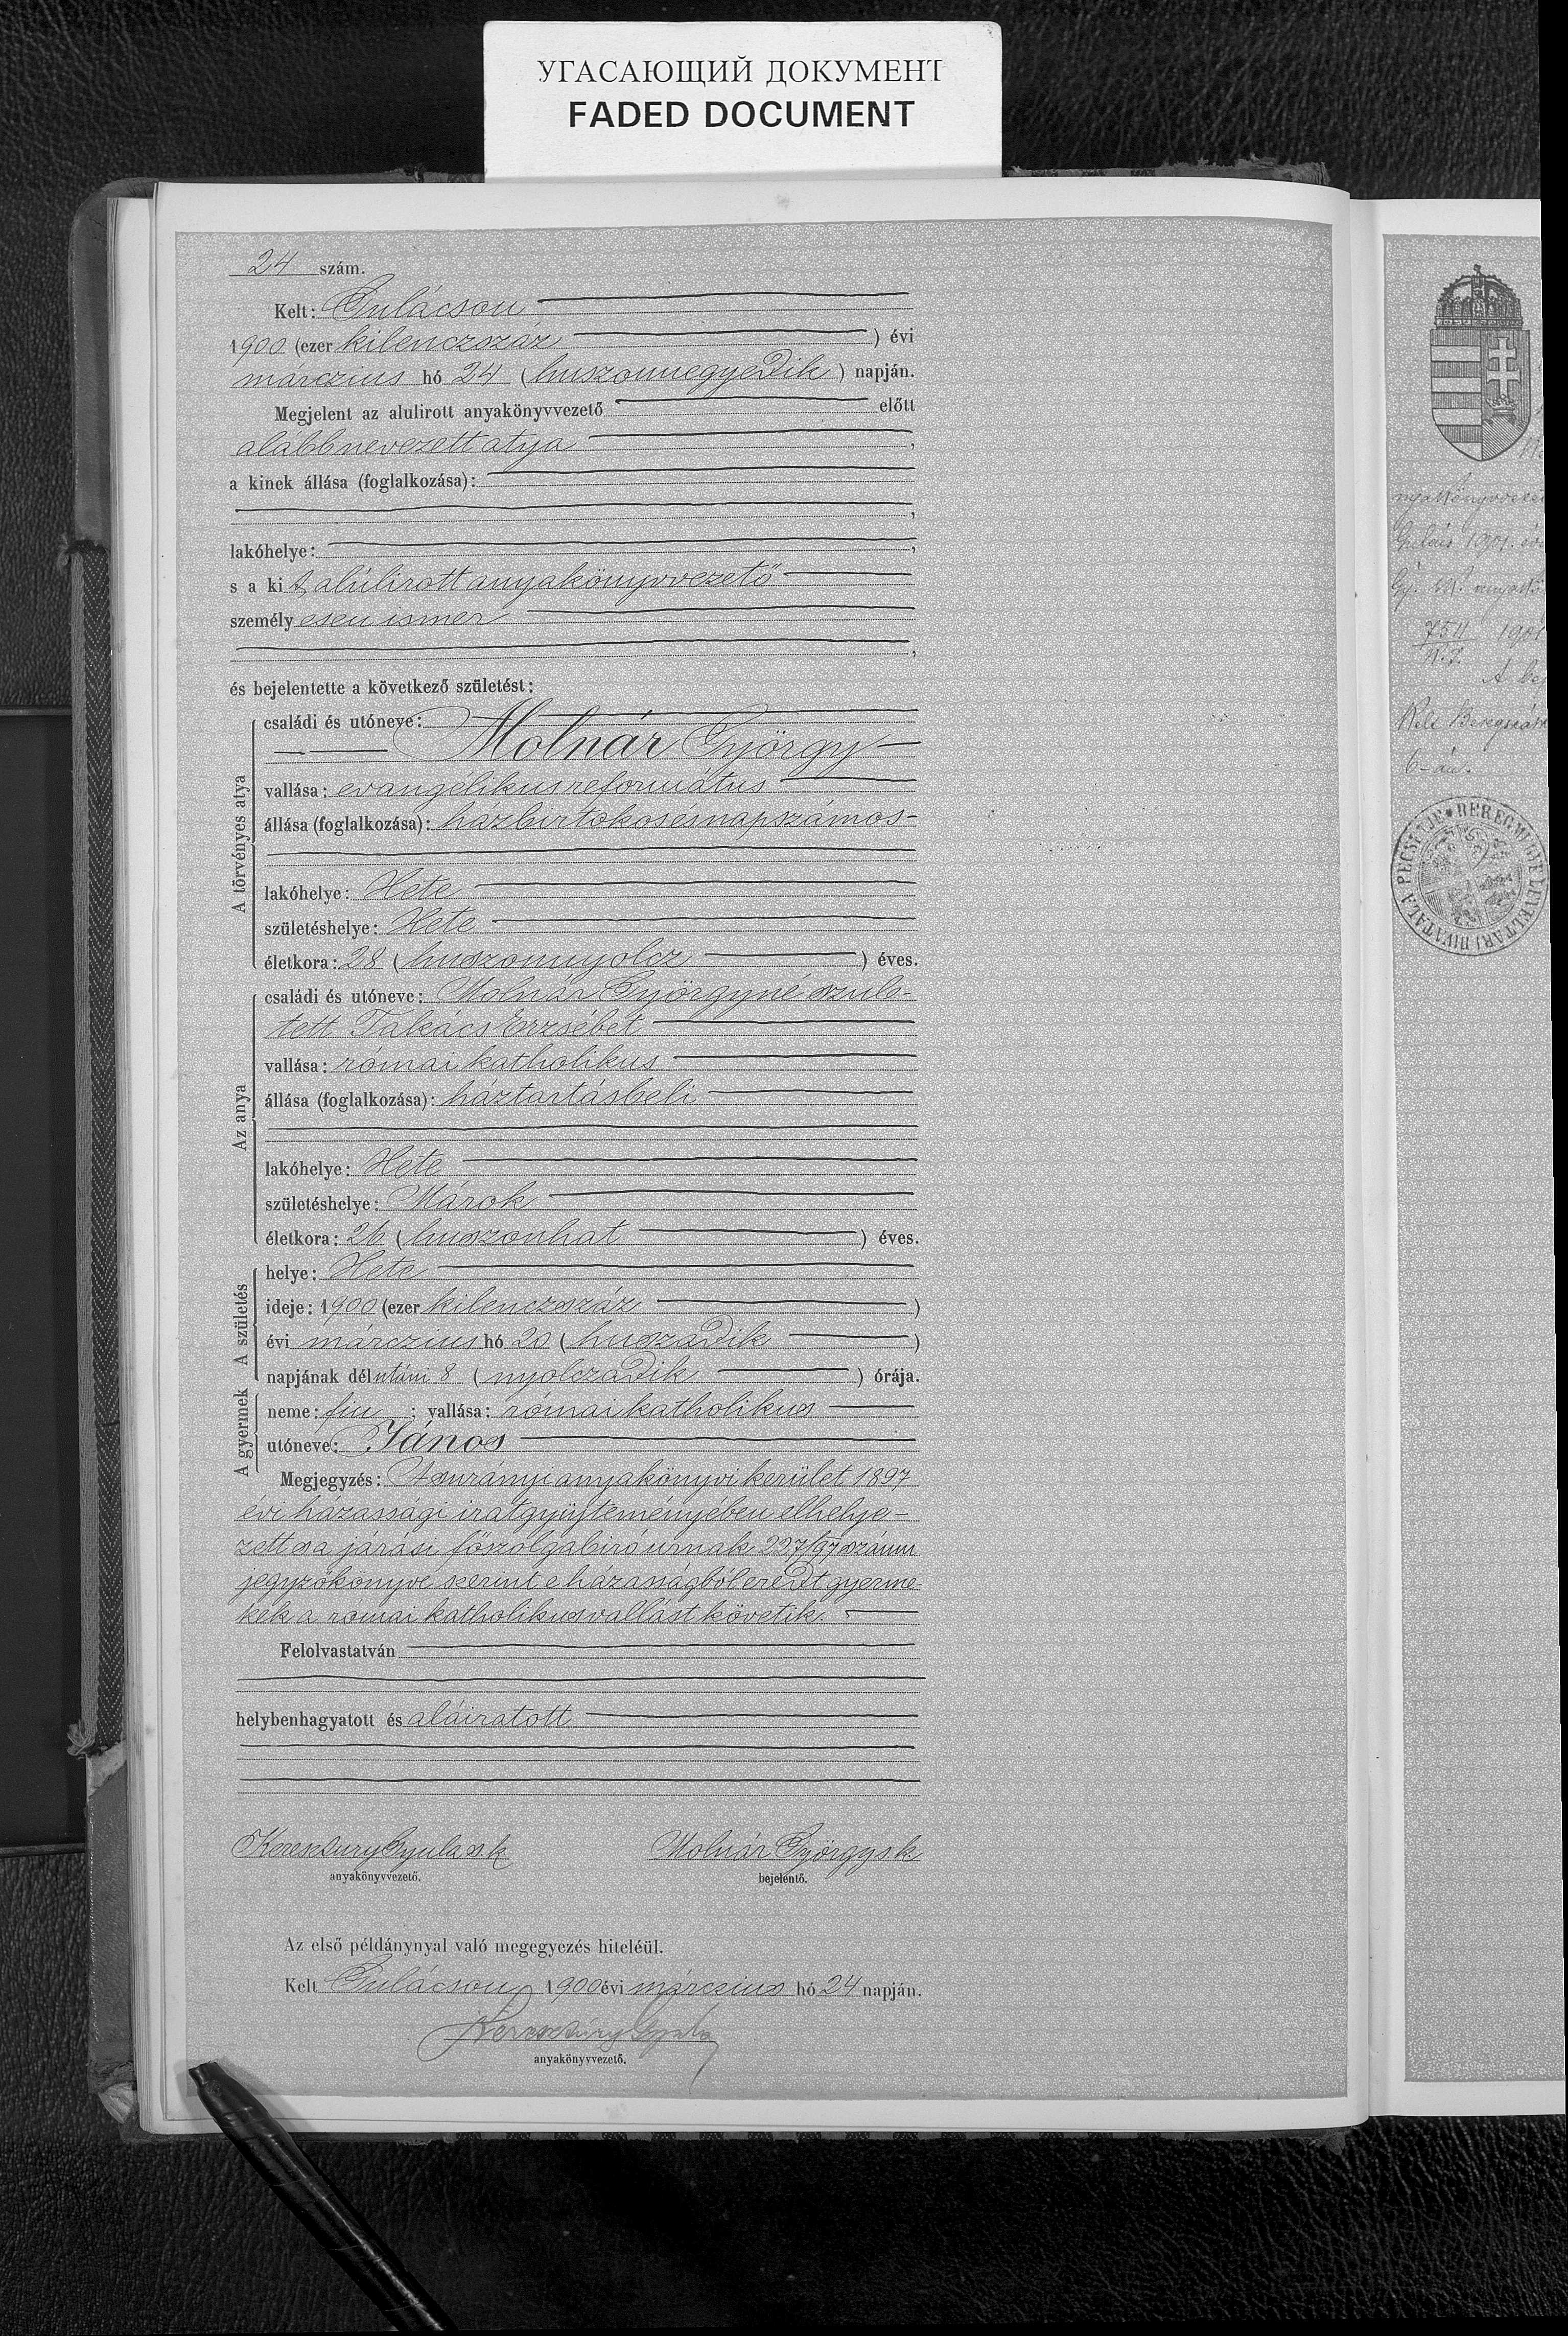 УГАСАЮЩИЙ ДОКУМЕНТ
FADED DOCUMENT
24 szám.
Kelt: Gulácson
1900 (ezer kilenczszáz) évi
márczius hó 24 (huszonnegyedik) napján.
Megjelent az alulirott anyakönyvvezető előtt
alább nevezett atya,
a kinek állása (foglalkozása):
,
lakóhelye: ,
s a kit alúlirott anyakönyvvezető
személyesen ismer
,
és bejelentette a következő születést:
A törvényes atya
családi és utóneve:
Molnár György
vallása: evangélikus református
állása (foglalkozása): házbirtokos és napszámos
lakóhelye: Hete
születéshelye: Hete
életkora: 28 (huszonnyolcz) éves.
Az anya
családi és utóneve: Molnár Györgyné szüle-
tett Takács Erzsébet
vallása: római katholikus
állása (foglalkozása): háztartásbeli
lakóhelye: Hete
születéshelye: Márok
életkora: 26 (huszonhat) éves.
A születés
helye: Hete
ideje: 1900 (ezer kilenczszáz)
évi márczius hó 20 (huszadik)
napjának délutáni 8 (nyolczadik) órája.
A gyermek
neme: fiu; vallása: római katholikus
utóneve: János
Megjegyzés: A surányi anyakönyvi kerület 1897
évi házassági iratgyüjteményében elhelye-
zett s a járási főszolgabiró urnak 227/97 számu
jegyzőkönyve szerint e házasságból eredt gyerme-
kek a római katholikus vallást követik.
Felolvastatván
helybenhagyatott és aláiratott
Keresztury Gyula sk Molnár György sk
anyakönyvvezető. bejelentő.
Az első példánynyal való megegyezés hiteléül.
Kelt Gulácson 1900 évi márczius hó 24 napján.
Keresztury Gyula
anyakönyvvezető.
Gulács 1901. év
754 1901
A
Beregszás
6-án.